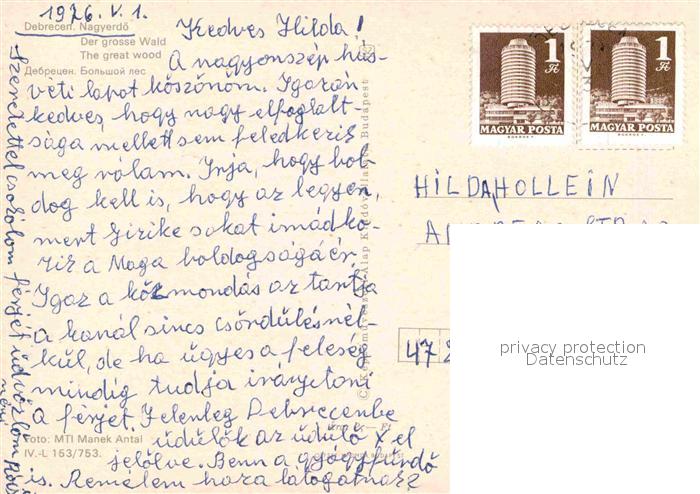 1976.V.1.
Debrecen. Nagyerdő
Der grosse Wald
The great wood
Дебрецен. Большой лес
Kedves Hilda!
A nagyonszép hús-
veti lapot köszönöm. Igazán
kedves, hogy nagy elfoglalt-
sága mellett sem feledkezik
meg rólam. Írja, hogy bol-
dog kell is, hogy az legyen,
mert Gizike sokat imádko-
zik a Maga boldogságáér.
Igaz a közmondás az tartja
a kanál sincs csöndülésnél-
kül, de ha ügyes a feleség
mindig tudja irányítani
a férjét. Jelenleg Debrecenbe
üdülök az üdülő X el
jelölve. Benn a gyógyfürdő
is. Remélem haza látogatnak?
Szeretettel csókolom férjét üdvözlöm
Foto: MTI Manek Antal
IV.-L 153/753.
1 Ft
MAGYAR POSTA
1 Ft
MAGYAR POSTA
HILDA HOLLEIN
472
privacy protection
Datenschutz